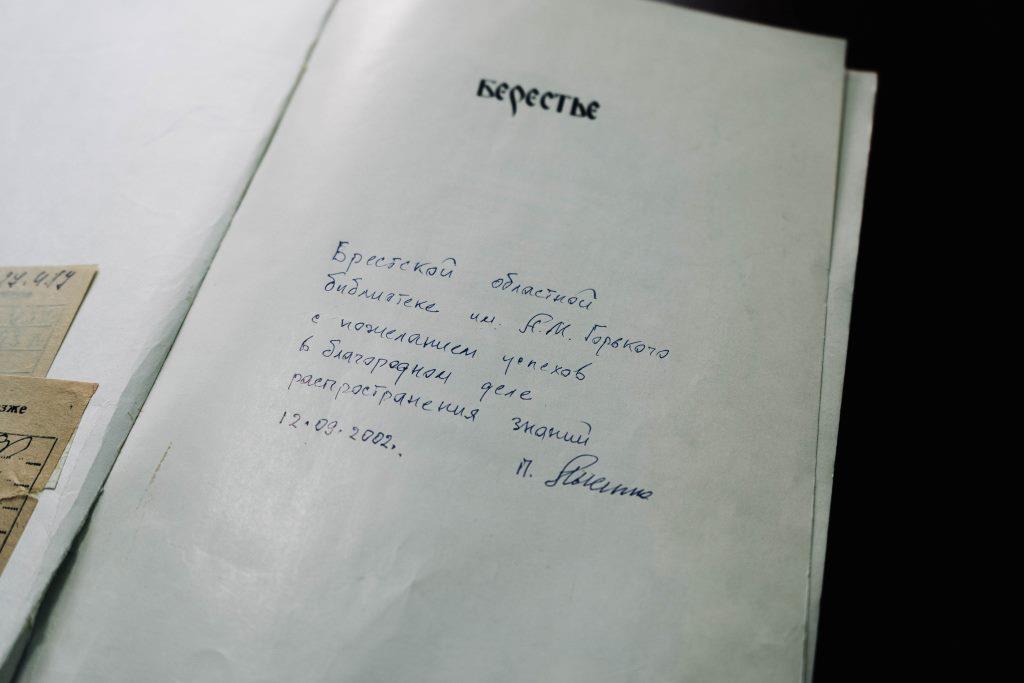 Берестье
Брестской областной
библиотеке им. А.М. Горького
с пожеланием успехов
в благородном деле
распространения знаний
12.09.2002.
П.
зже